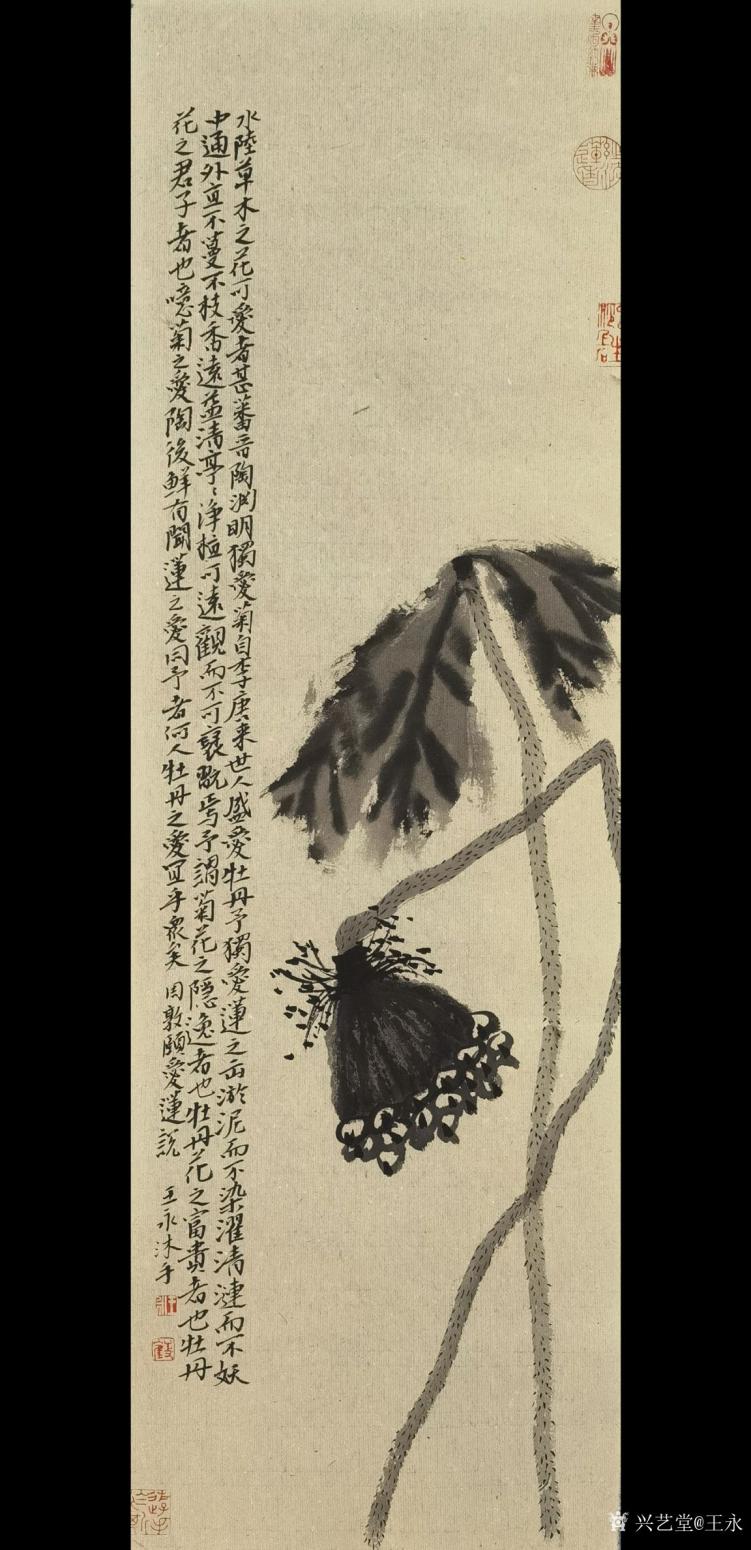 水陸草木之花可愛者甚蕃晉陶渊明獨愛菊自李唐来世人盛愛牡丹予獨愛蓮之出淤泥而不染濯清漣而不妖
中通外直不蔓不枝香遠益清亭〻淨植可遠觀而不可褻翫焉予謂菊花之隱逸者也牡丹花之富貴者也牡丹
花之君子者也噫菊之愛陶後鮮有聞蓮之愛同予者何人牡丹之愛宜乎衆矣 周敦頤愛蓮說 王永沐手
兴艺堂@王永